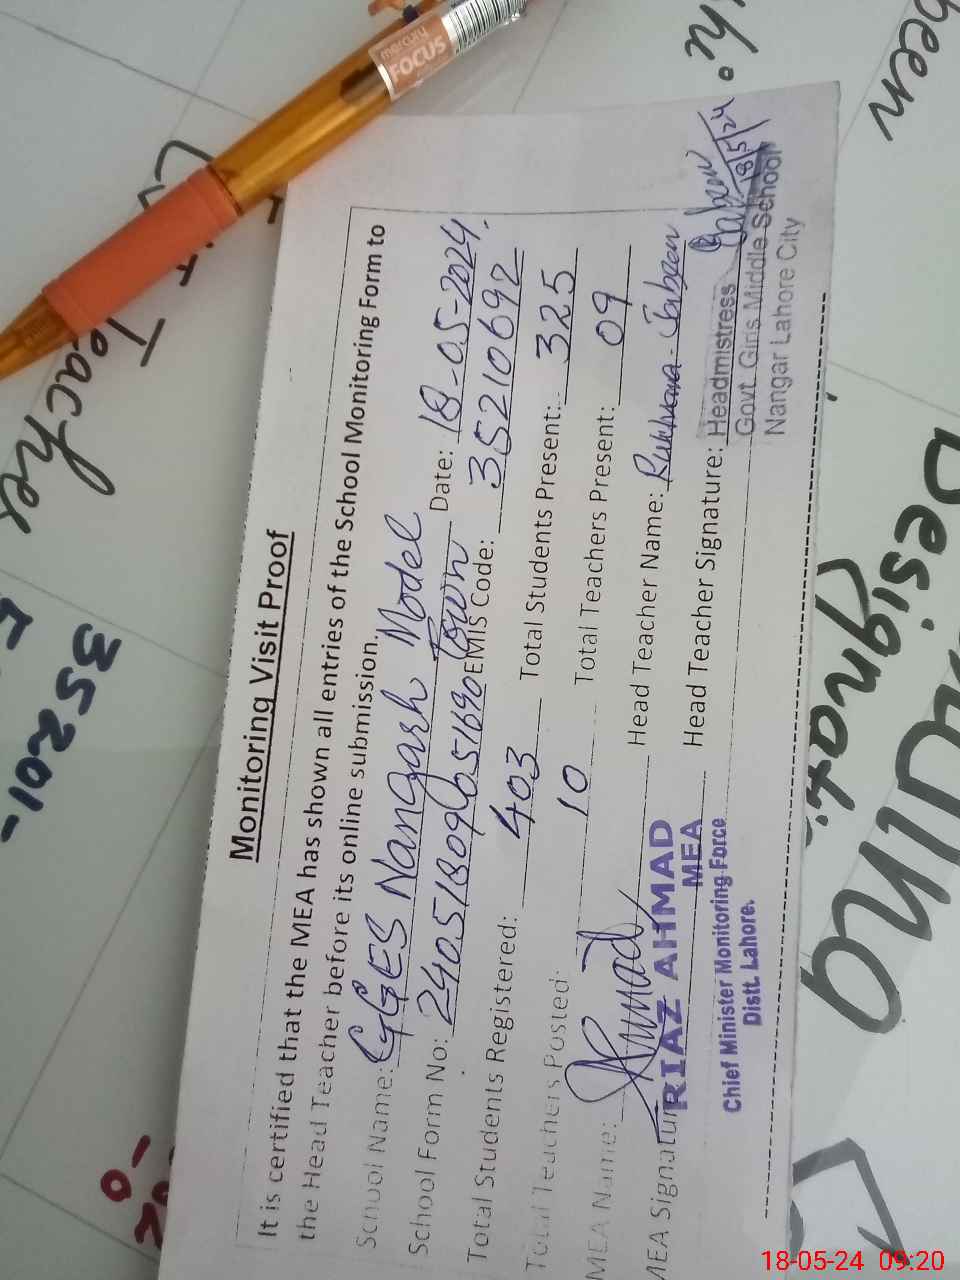 Monitoring Visit Proof
It is certified that the MEA has shown all entries of the School Monitoring Form to
the Head Teacher before its online submission.
School Name: GGES Nangarh Model Town Date: 18-05-2024.
School Form No: EMIS Code: 35210692
Total Students Registered: 403 Total Students Present: 325
Total Teachers Posted: 10 Total Teachers Present: 09
MEA Name: Head Teacher Name: Rukhsana Jabeen
MEA Signature Head Teacher Signature:
RIAZ AHMAD
MEA
Chief Minister Monitoring Force
Distt. Lahore.
Headmistress
Govt. Girls Middle School
Nangar Lahore City
18/5/24
mercury
FOCUS
Teacher
35201-
been
18-05-24 09:20